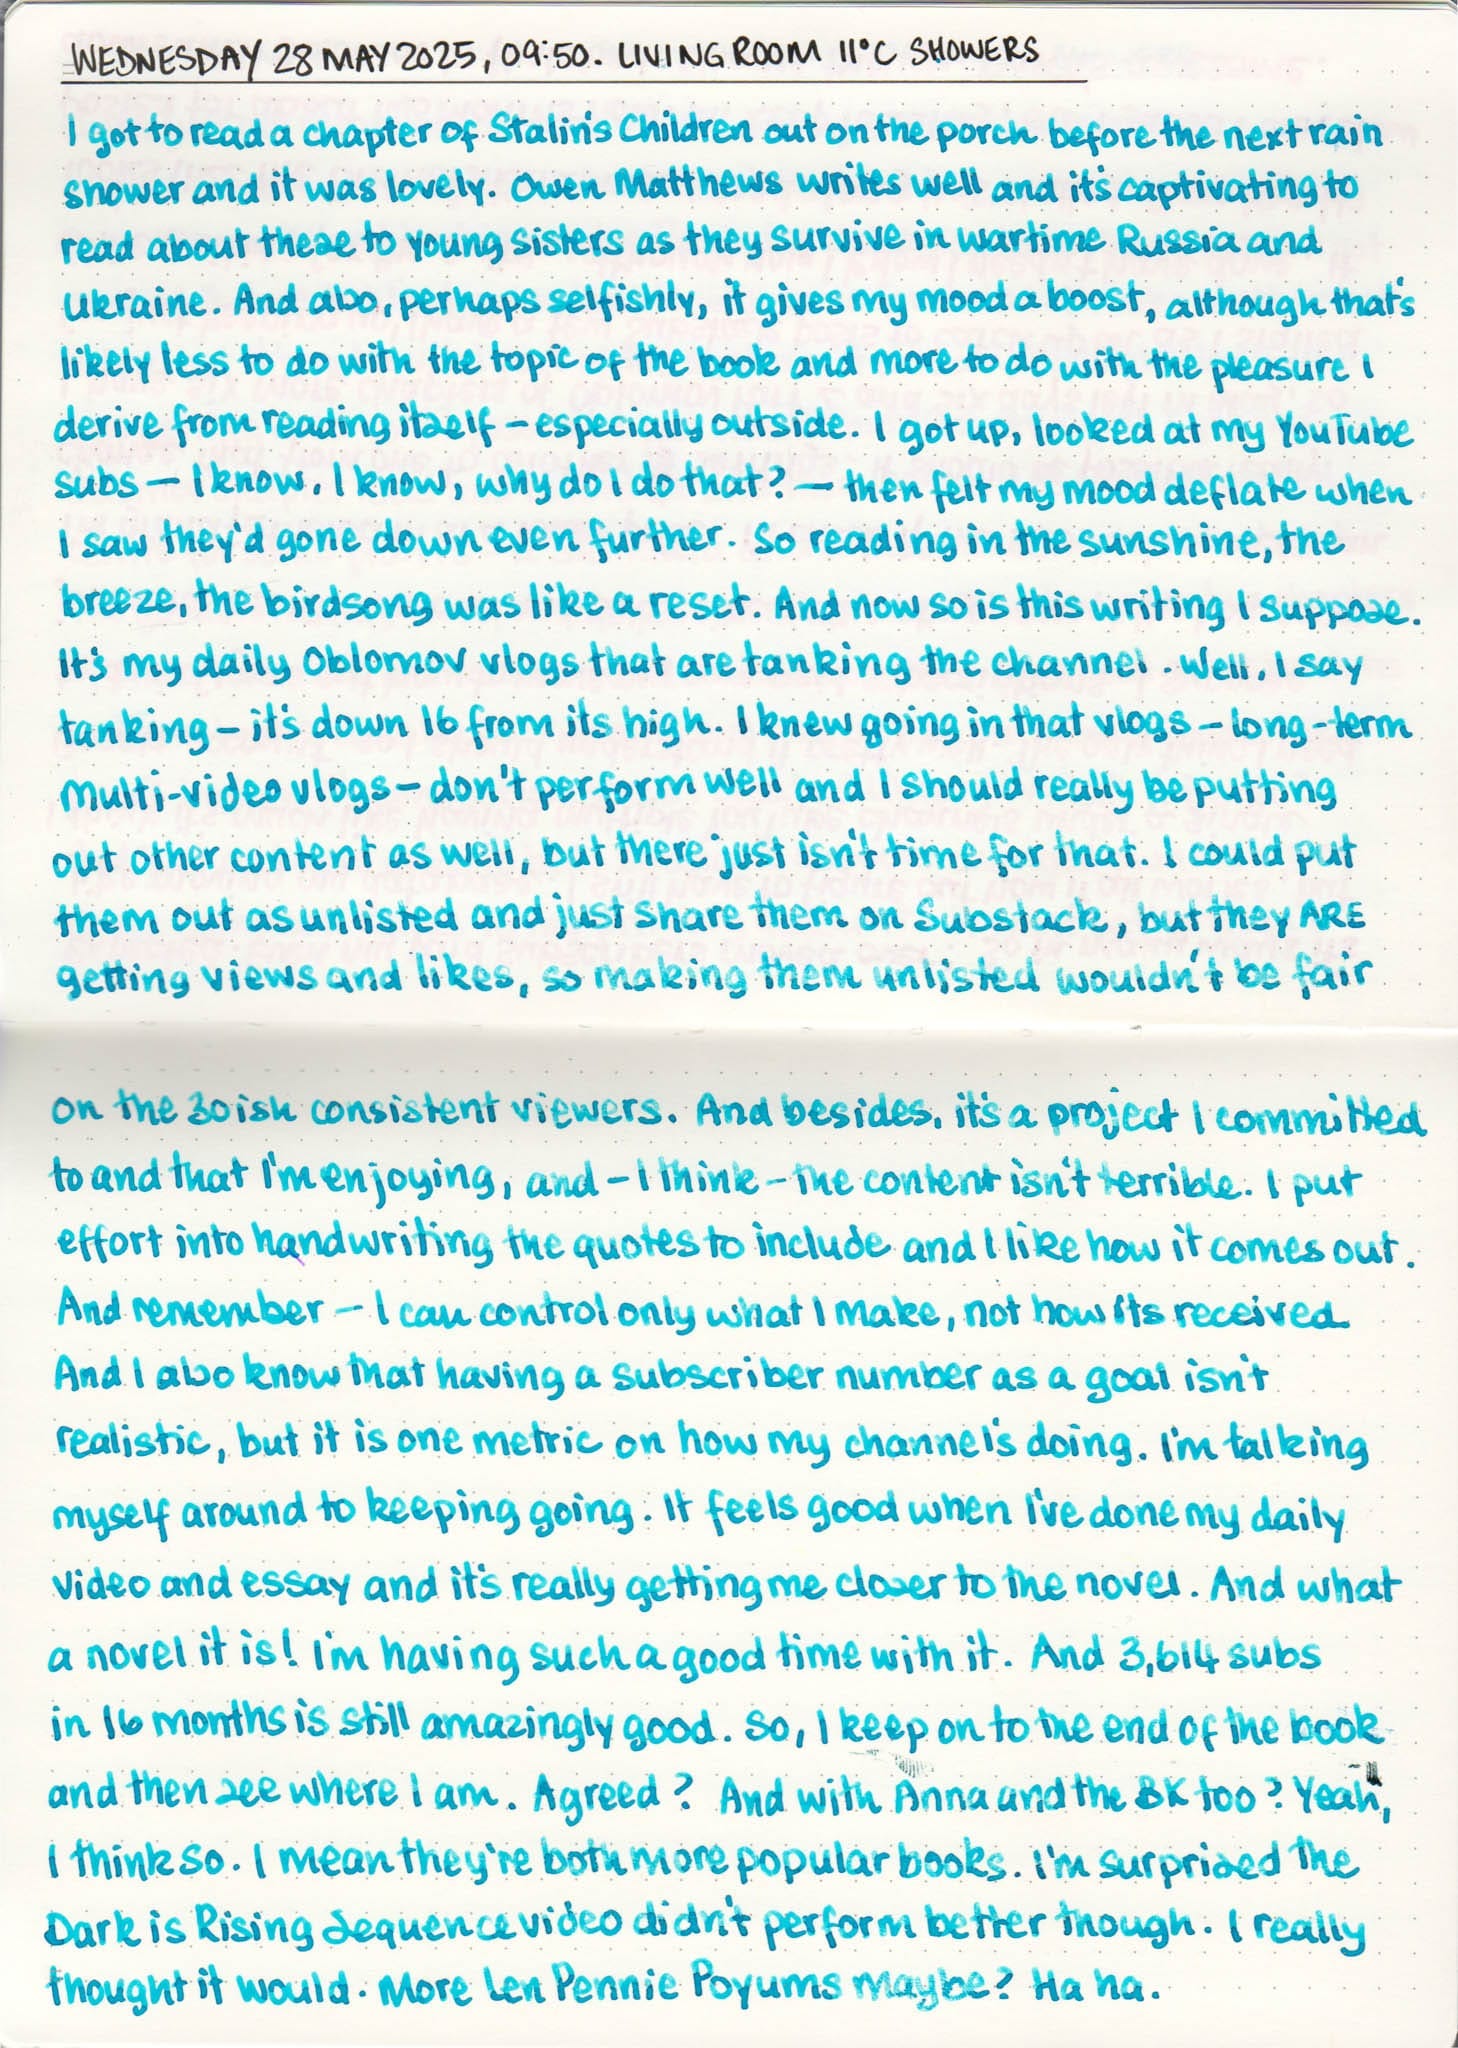 WEDNESDAY 28 MAY 2025, 09:50. LIVING ROOM 11°C SHOWERS
I got to read a chapter of Stalin's Children out on the porch before the next rain
shower and it was lovely. Owen Matthews writes well and it's captivating to
read about these to young sisters as they survive in wartime Russia and
Ukraine. And also, perhaps selfishly, it gives my mood a boost, although that's
likely less to do with the topic of the book and more to do with the pleasure I
derive from reading itself – especially outside. I got up, looked at my YouTube
subs – I know, I know, why do I do that? – then felt my mood deflate when
I saw they'd gone down even further. So reading in the sunshine, the
breeze, the birdsong was like a reset. And now so is this writing I suppose.
It's my daily Oblomov vlogs that are tanking the channel. Well, I say
tanking – it's down 16 from its high. I knew going in that vlogs – long-term
multi-video vlogs – don't perform well and I should really be putting
out other content as well, but there just isn't time for that. I could put
them out as unlisted and just share them on Substack, but they ARE
getting views and likes, so making them unlisted wouldn't be fair
on the 30ish consistent viewers. And besides, it's a project I committed
to and that I'm enjoying, and – I think – the content isn't terrible. I put
effort into handwriting the quotes to include and I like how it comes out.
And remember – I can control only what I make, not how its received
And I also know that having a subscriber number as a goal isn't
realistic, but it is one metric on how my channel's doing. I'm talking
myself around to keeping going. It feels good when I've done my daily
video and essay and it's really getting me closer to the novel. And what
a novel it is! I'm having such a good time with it. And 3,614 subs
in 16 months is still amazingly good. So, I keep on to the end of the book
and then see where I am. Agreed? And with Anna and the BK too? Yeah,
I think so. I mean they're both more popular books. I'm surprised the
Dark is Rising Sequence video didn't perform better though. I really
thought it would. More Len Pennie Poyums maybe? Ha ha.